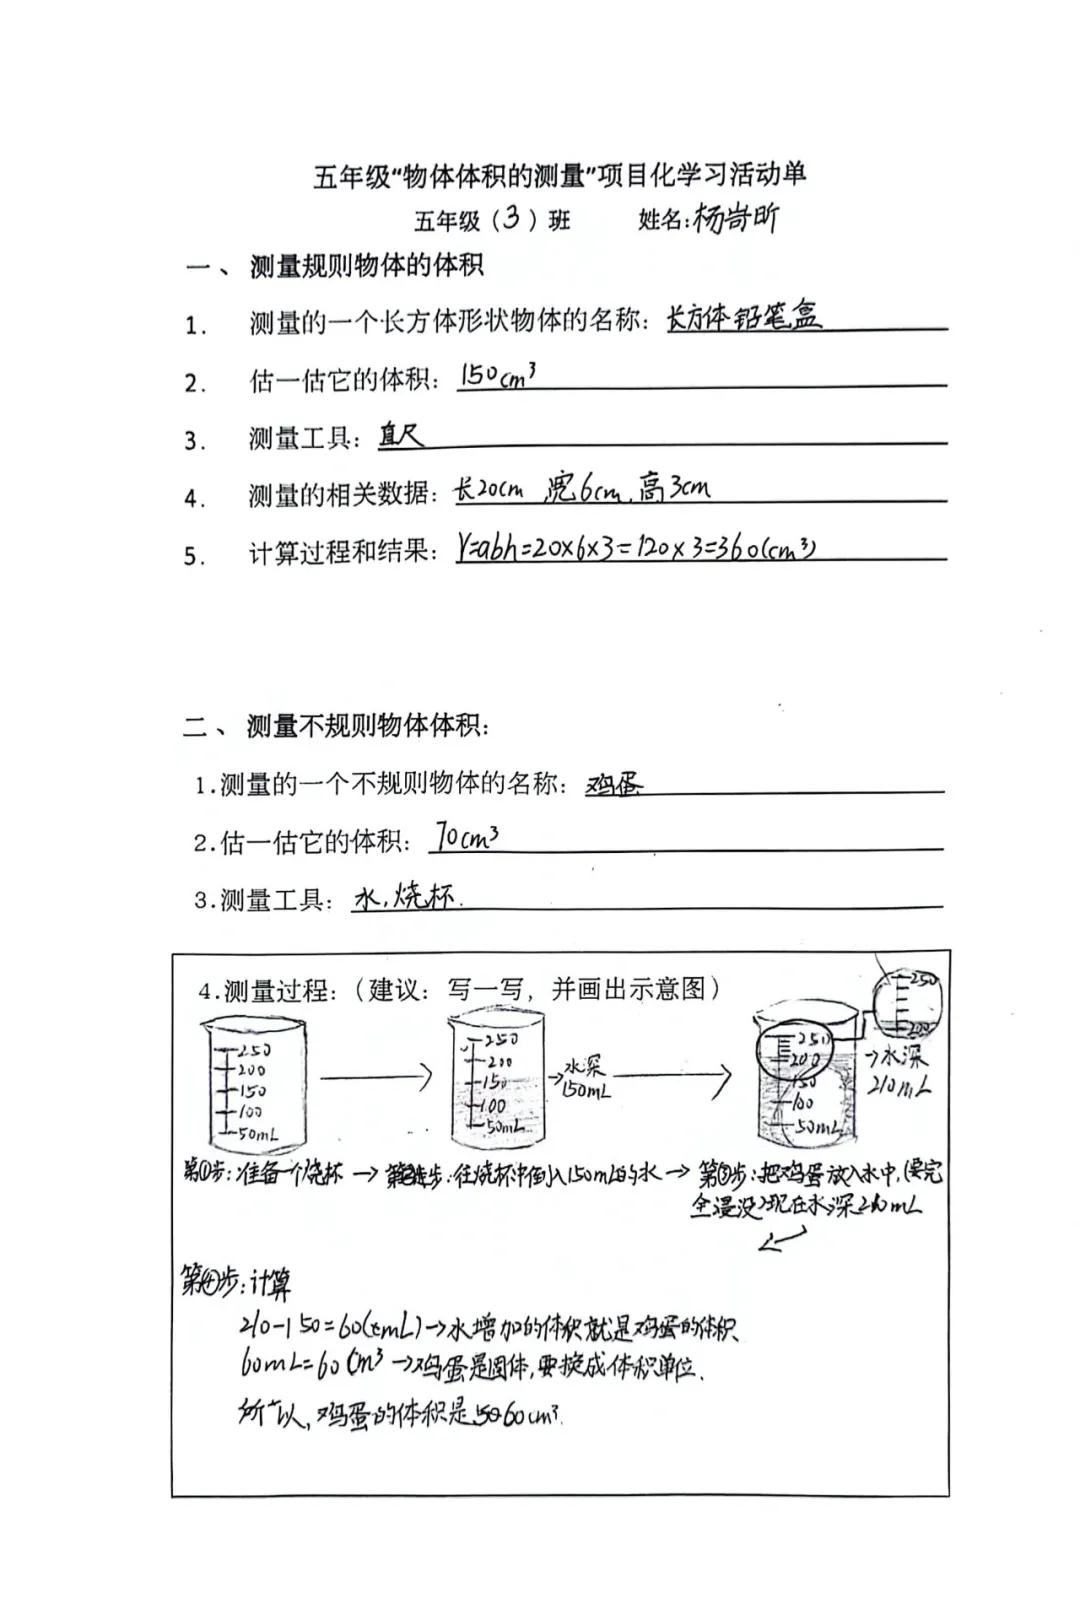 五年级“物体体积的测量”项目化学习活动单
五年级（3）班 姓名:杨岢昕
一、测量规则物体的体积
1. 测量的一个长方体形状物体的名称：长方体铅笔盒
2. 估一估它的体积：150cm³
3. 测量工具：直尺
4. 测量的相关数据：长20cm 宽6cm.高3cm
5. 计算过程和结果：V=abh=20×6×3=120×3=360(cm³)
二、测量不规则物体体积：
1.测量的一个不规则物体的名称：鸡蛋
2.估一估它的体积：70cm³
3.测量工具：水,烧杯.
4.测量过程：（建议：写一写，并画出示意图）
250
200
150
100
50mL
250
200
150
100
50mL
→水深
150mL
250
200
150
100
50mL
250
200
→水深
210mL
第①步:准备一个烧杯→第②步:往烧杯中倒入150mL的水→第③步:把鸡蛋放入水中,(要完
全浸没)现在水深210mL
第④步:计算
210-150=60(mL)→水增加的体积就是鸡蛋的体积
60mL=60cm³→鸡蛋是固体,要换成体积单位.
所以,鸡蛋的体积是60cm³.